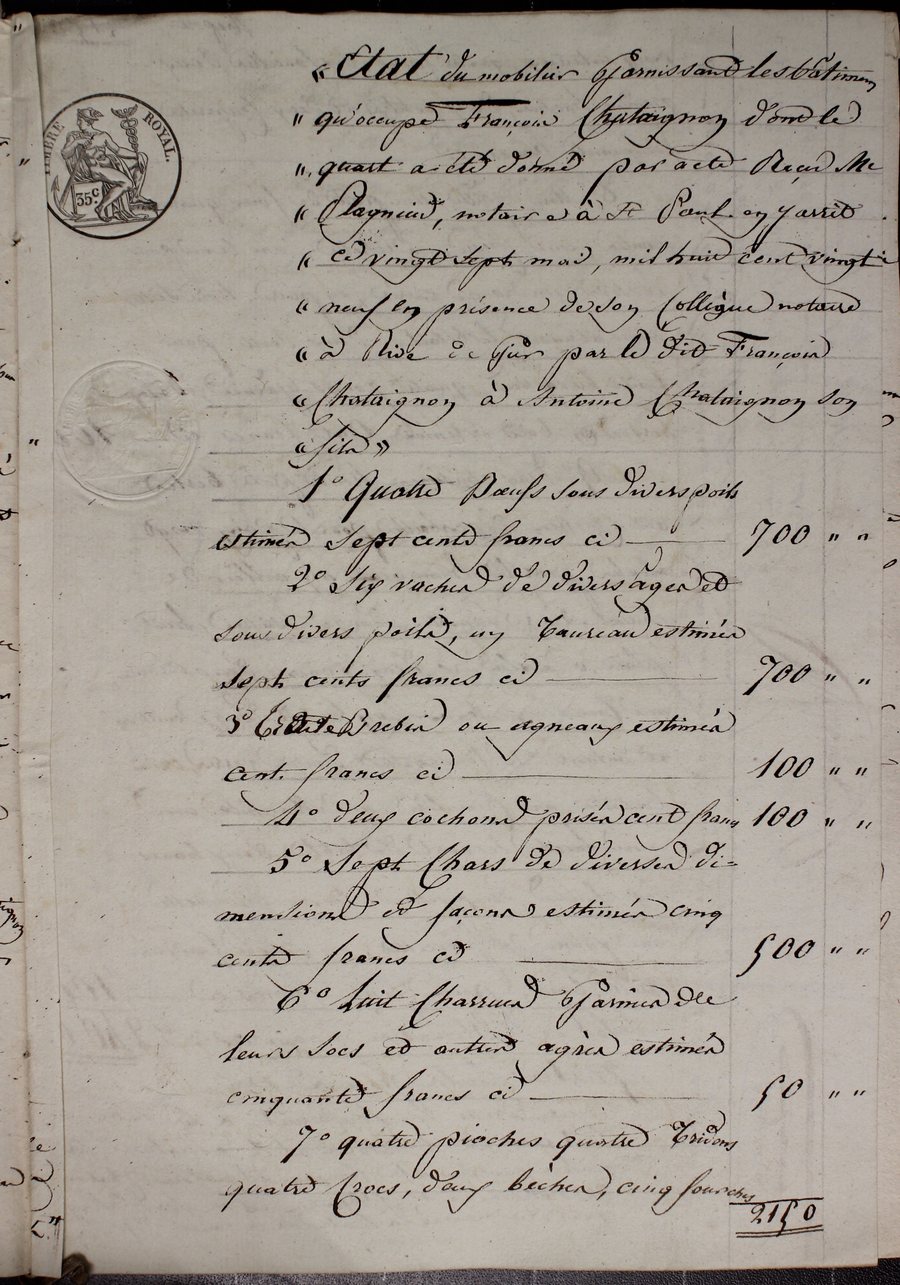 TIMBRE ROYAL.
35 c.
« Etat du mobilier Garnissant les bâtimens
" qu'occupe François Chataignon dont le
" quart a été donné par acte Reçu Me
« Plagnieu, notaire à St Paul en Jarret
« ce vingt sept mai, mil huit cent vingt
« neuf en présence de son Collègue notaire
« à Rive de Gier par le dit François
« Chataignon à Antoine Chataignon son
« fils »
1° Quatre Bœufs sous divers poils
estimés Sept cents francs ci — 700 " "
2° Six vaches de divers âges et
sous divers poils, un Taureau estimés
Sept cents francs ci — 700 " "
3° Brebis ou agneaux estimés
cent francs ci — 100 " "
4° deux cochons prisés cent francs 100 " "
5° Sept Chars de diverses di=
mentions et façons estimés cinq
cents francs ci — 500 " "
6° huit Charrues Garnies de
leurs socs et autres agrès estimés
cinquante francs ci — 50 " "
7° quatre pioches quatre Tridens
quatre Crocs, deux bêches, cinq fourches
2150